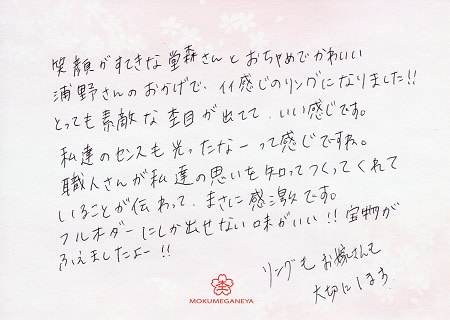 笑顔がすてきな堂森さんとおちゃめでかわいい
浦野さんのおかげで、イイ感じのリングになりました!!
とっても素敵な杢目が出てて、いい感じです。
私達のセンスも光ったなーって感じですね。
職人さんが私達の思いを知ってつくってくれて
いることが伝わって、まさに感激です。
フルオーダーにしか出せない味がいい!! 宝物が
ふえましたよー!!
リングも お嫁さんも
大切にします
MOKUMEGANEYA